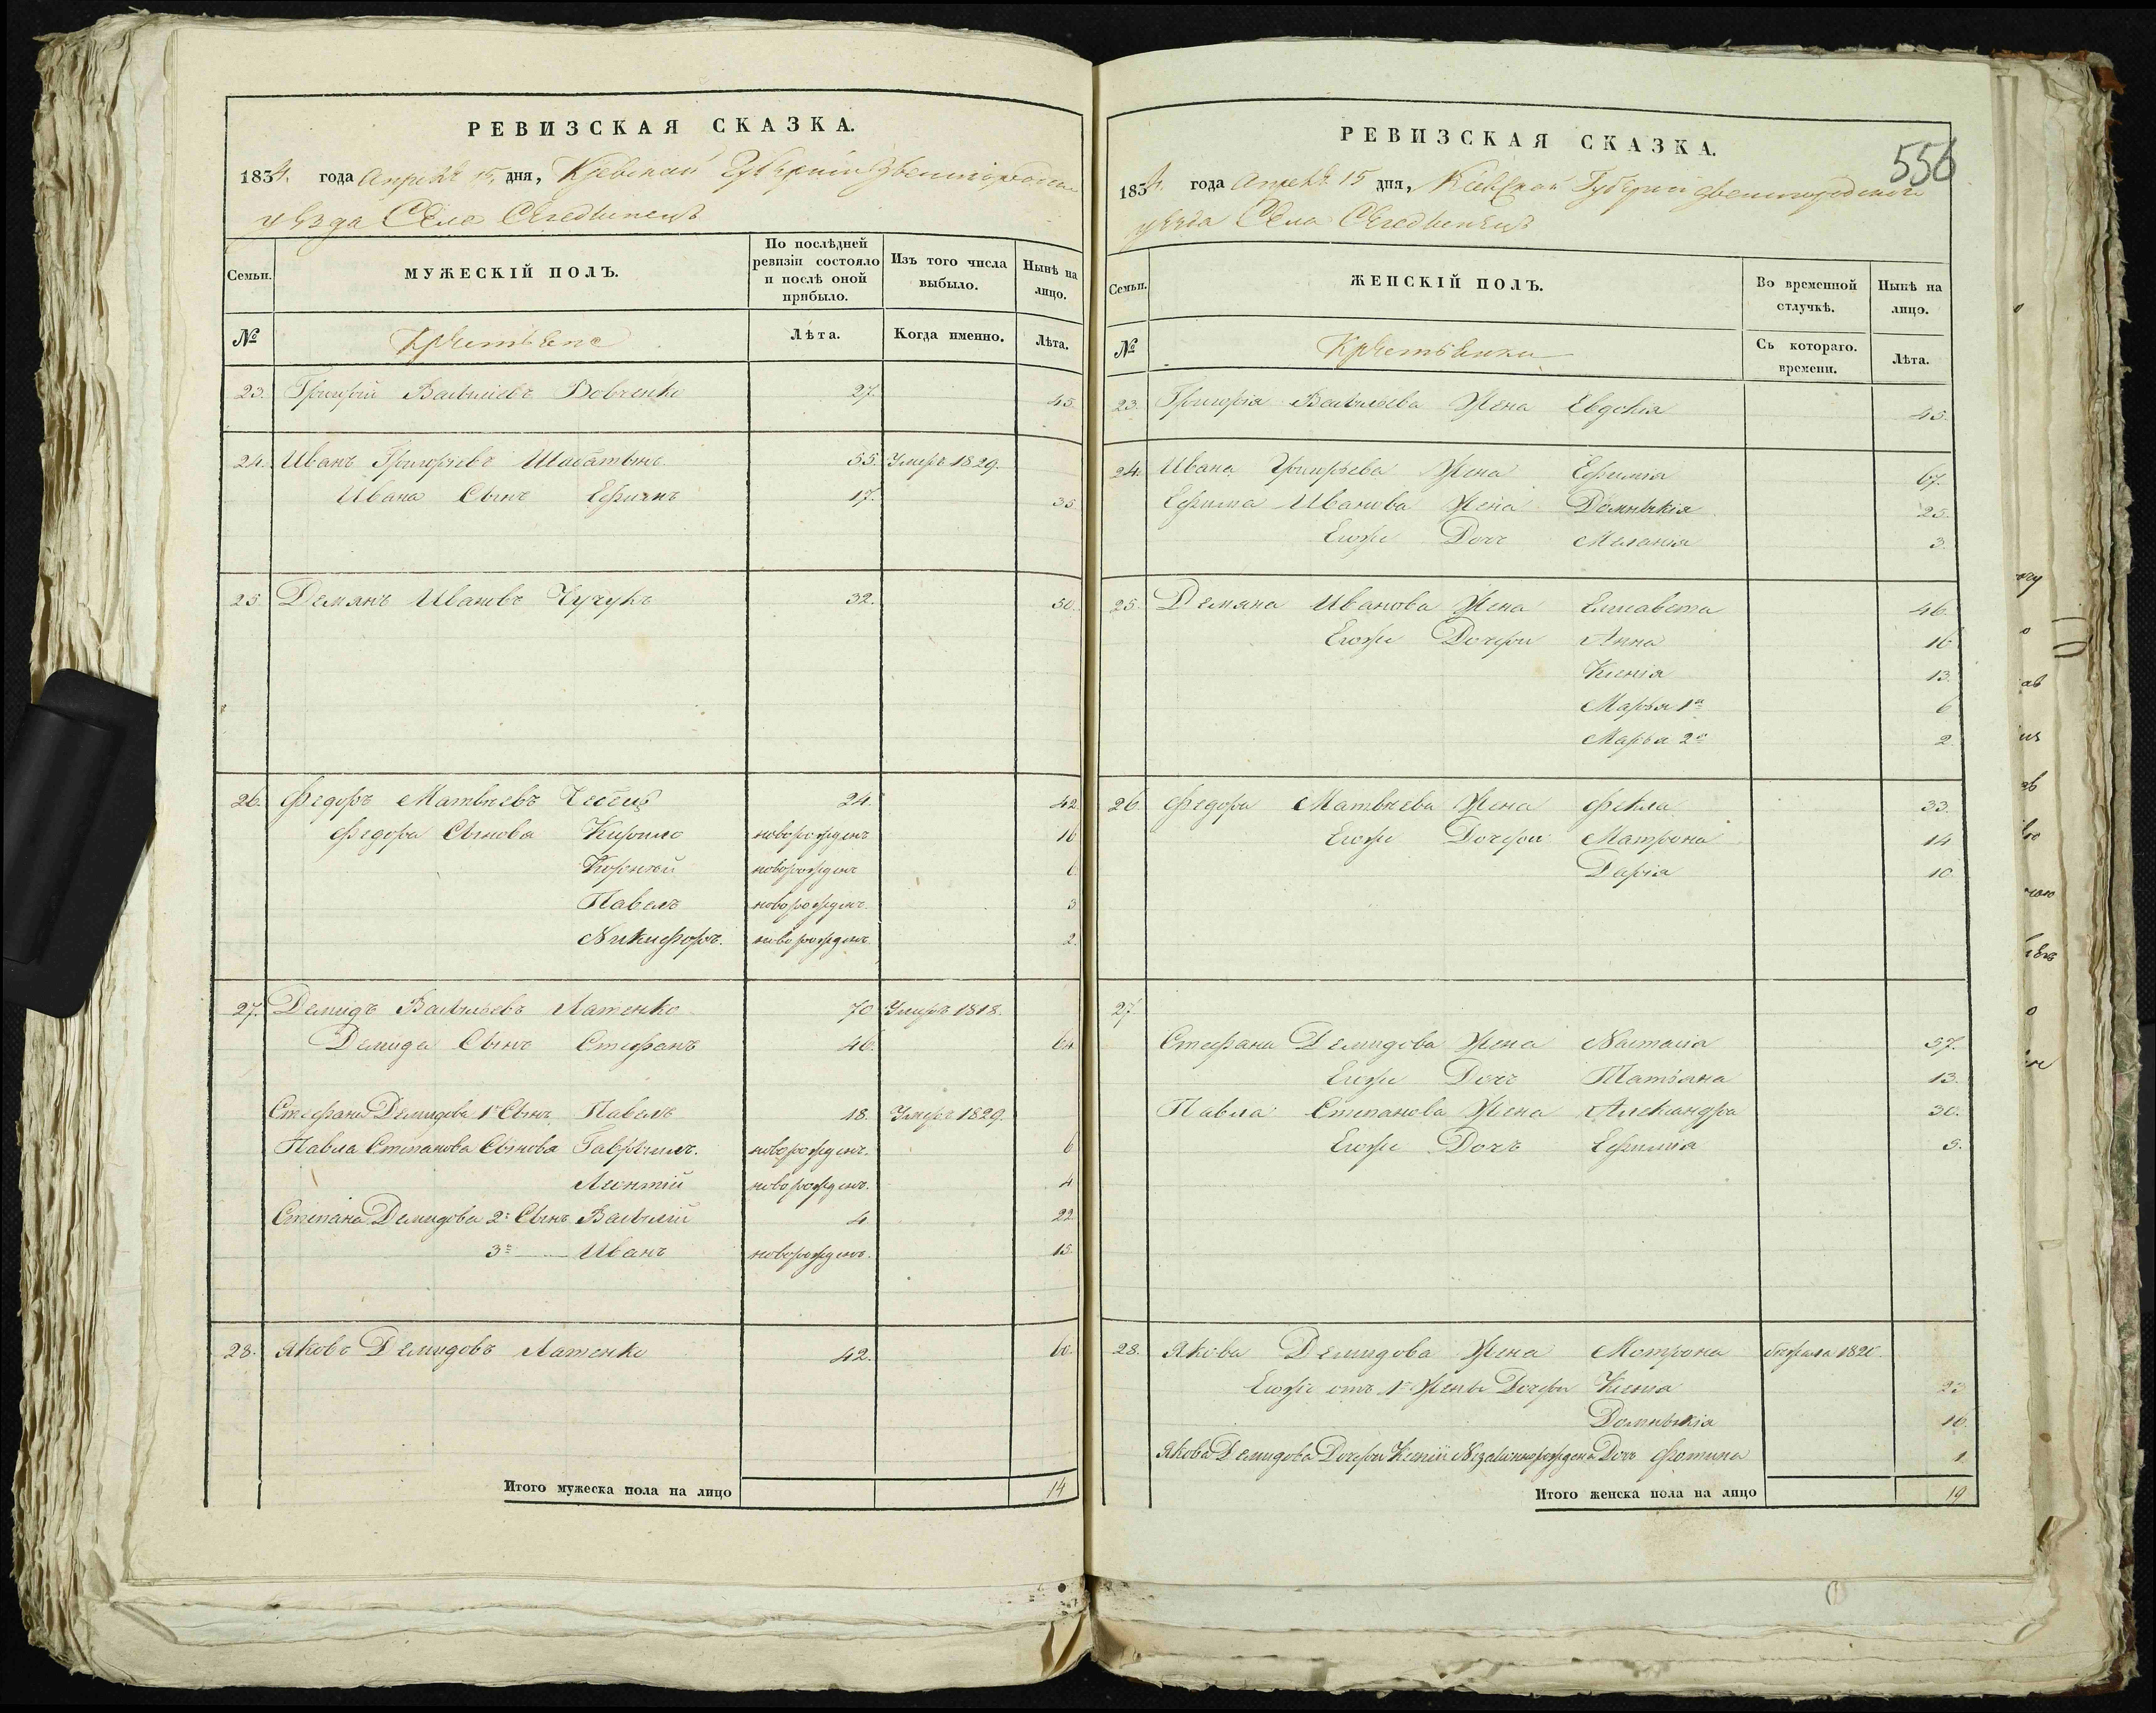 РЕВИЗСКАЯ СКАЗКА.
1834. года Апреля 15, дня, Кіевской Губерніи Звенигородска
уѣзда Села Сегединець
Семьи.
МУЖЕСКІЙ ПОЛЪ.
По послѣдней ревизіи состояло и послѣ оной прибыло.
Изъ того числа выбыло.
Нынѣ на лицо.
№ Крестьяне Лѣта. Когда именно. Лѣта.
23. Григорій Васильевъ Вовченко 27. 45.
24. Иванъ Григорьевъ 55. Умеръ 1829.
Ивана Сынъ Ефимъ 17. 35.
25 Демянъ Ивановъ Чучукъ 32. 50.
26. Федоръ Матвѣевъ 24. 42.
Федора Сынова Кирило новорожденъ 16
Корнѣй новорожденъ 6
Павелъ новорожденъ. 3
Никифоръ. новорожденъ. 2.
27. Демидъ Васильевъ Латенко 70 Умеръ 1818.
Демида Сынъ Стефанъ 46. 64
Стефана Демидова 1й Сынъ Павелъ 18. Умеръ 1829.
Павла Степанова Сынова Гавріилъ. новорожденъ. 6
Леонтій новорожденъ. 4
Степана Демидова 2й Сынъ Василій 4. 22
3й Иванъ новорожденъ. 15.
28. Яковъ Демидовъ Латенко 42. 60.
Итого мужеска пола на лицо 14
556
РЕВИЗСКАЯ СКАЗКА.
1834. года Апреля 15 дня, Кіевской Губерніи Звенигородского
уѣзда Села Сегединець
Семьи.
ЖЕНСКІЙ ПОЛЪ.
Во временной отлучкѣ.
Нынѣ на лицо.
№ Крестьянки Съ котораго. времени. Лѣта.
23. Григорія Васильева Жена Евдокія 45.
24. Ивана Григорьева Жена Ефимія 67.
Ефима Иванова Жена Домникія 25.
Егоже Дочь Меланія 3.
25. Демяна Иванова Жена Елисавета 46.
Егоже Дочери Анна 16
Ксенія 13.
Марья 1я 6
Марья 2я 2.
26 Федора Матвѣева Жена Фекла 33.
Егоже Дочери Матрона 14
Дарія 10
27
Стефана Демидова Жена Настасія 57.
Егоже Дочь Татьяна 13.
Павла Степанова Жена Александра 30.
Егоже Дочь Ефимія 5.
28. Якова Демидова Жена Мотрона бежала 1820.
Егоже отъ 1й Жены Дочери Ксенія 23
Домникія 16
Якова Демидова Дочери Ксеніи Незаконнорождена Дочь Фотина 1.
Итого женска пола на лицо 19